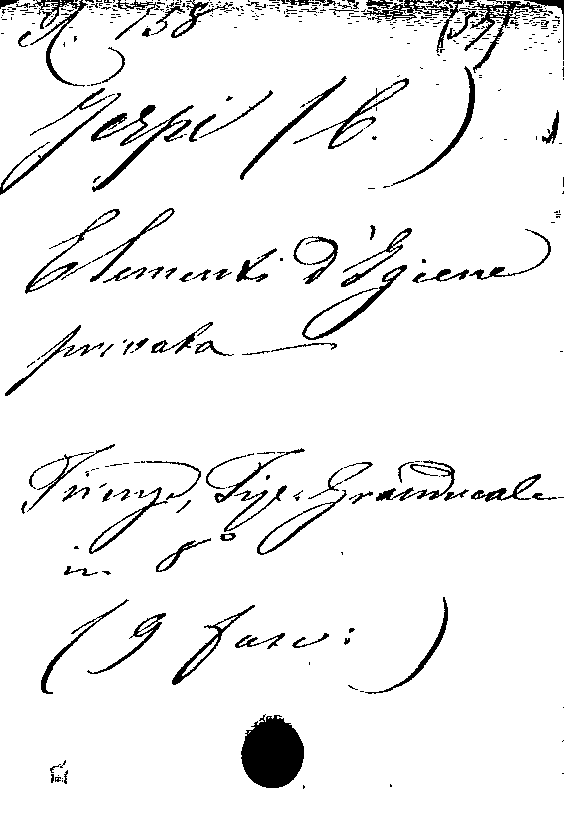 A. 158 (57)
Gerpi (C.)
Elementi d'Igiene
privata
Firenze, Tip. Granducale
in 8°
(9 fasc:)